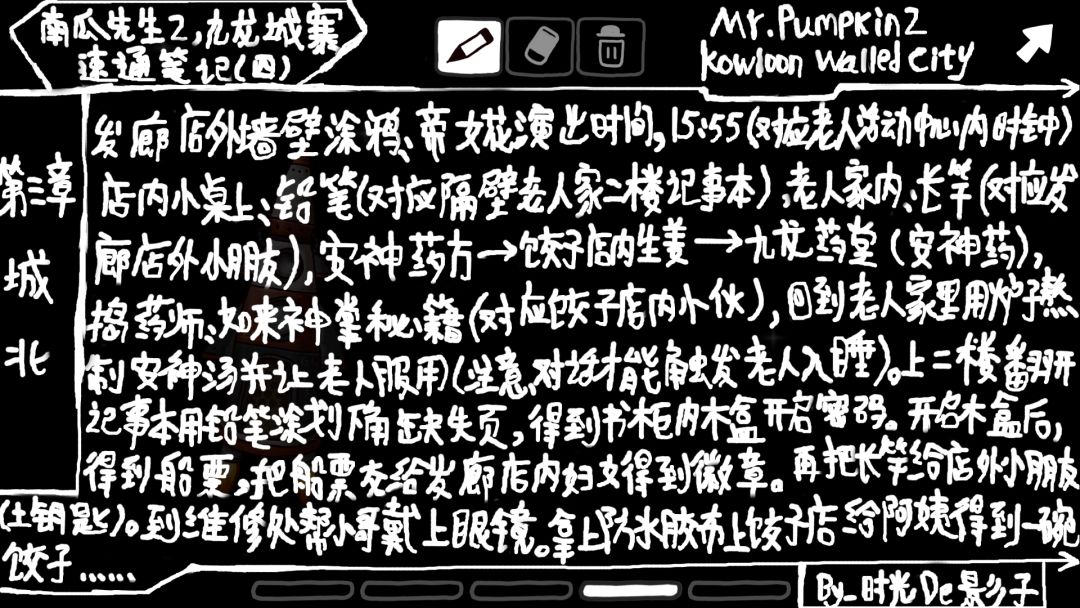 南瓜先生2,九龙城寨
速通笔记(四)
Mr.Pumpkin2
kowloon walled city
第三章
城
北
发廊店外墙壁涂鸦、帝女花演出时间,15:55(对应老人活动中心内时钟)
店内小桌上、铅笔(对应隔壁老人家二楼记事本)、老人家内、长竿(对应发
廊店外小朋友),安神药方→饺子店内生姜→九龙药堂(安神药),
捣药师、如来神掌秘籍(对应饺子店内小伙),回到老人家里用炉子熬
制安神汤并让老人服用(注意,对话才能触发老人入睡)。上二楼翻开
记事本用铅笔涂划确缺失页,得到书柜内木盒开启密码。开启木盒后,
得到船票,把船票交给发廊店内妇女得到徽章。再把长竿给店外小朋友
(土钥匙)。到维修处帮小哥戴上眼镜。拿上防水胶布上饺子店给阿姨得到一碗
饺子......
By_时光De影子